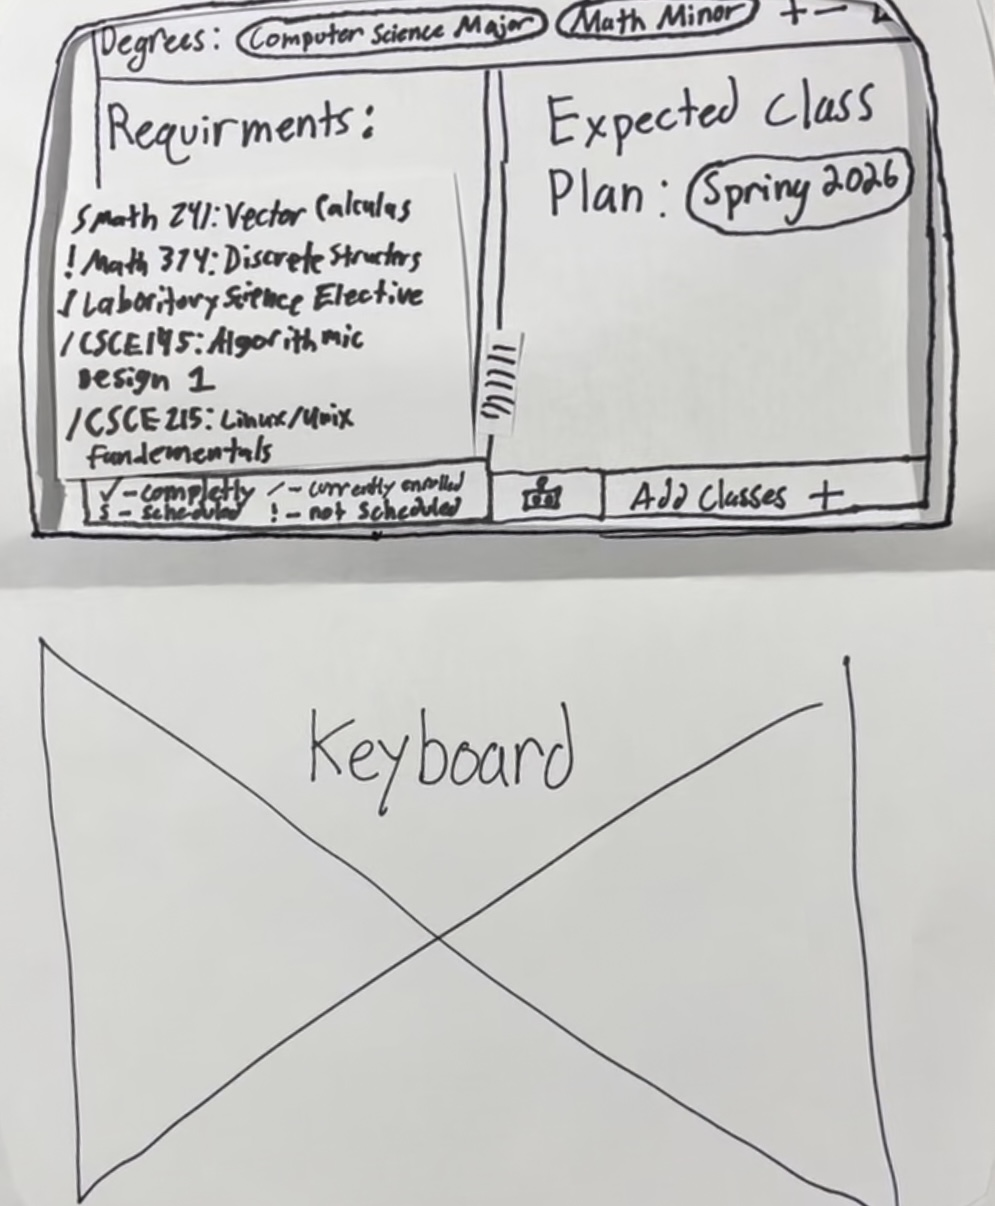 Degrees: Computer Science Major Math Minor + -
Requirments:
S Math 241: Vector Calculas
! Math 374: Discrete Structers
/ Laboritory Science Elective
/ CSCE 145: Algorithmic
Design 1
/ CSCE 215: Linux/Unix
Fundementals
✓ - completly / - currently enrolled
S - scheduled ! - not scheduled
Expected Class
Plan: Spring 2026
Add Classes +
Keyboard